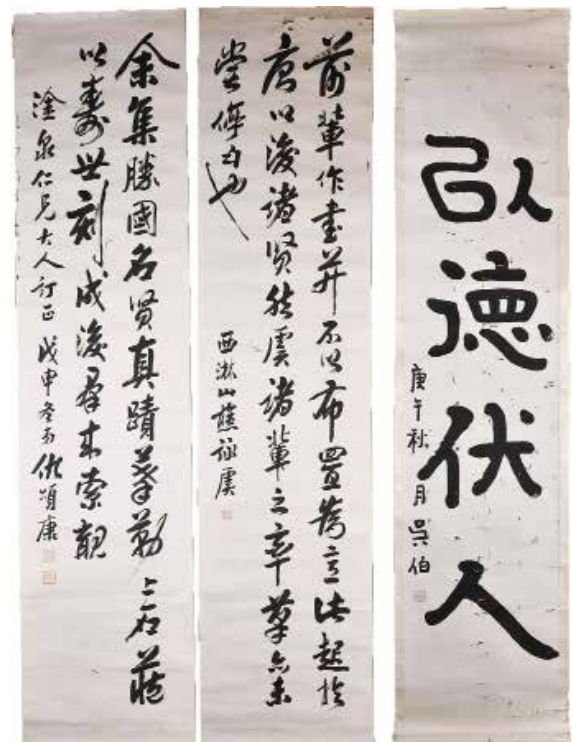 以德伏人
庚午秋月吳伯
前輩作書并不以布置為意法起於
唐以後諸賢然虞褚輩之率草亦未
嘗
西漵山樵詠虞
余集勝國名賢真蹟摹勒上石藏
以壽世刻成後羣来索觀
塗泉仁兄大人訂正 戊申冬 仇頌康